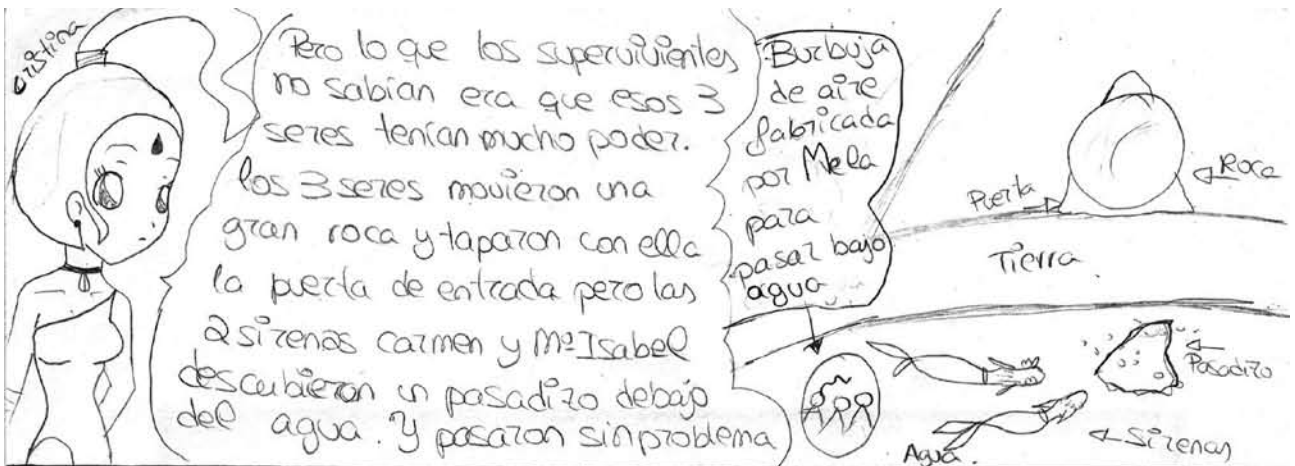 Cristina
Pero lo que los supervivientes
no sabían era que esos 3
seres tenían mucho poder.
los 3 seres movieron una
gran roca y taparon con ella
la puerta de entrada pero las
2 sirenas carmen y Mª Isabel
descubieron un pasadizo debajo
del agua. Y pasaron sin problema
Burbuja
de aire
fabricada
por Mela
para
pasar bajo
agua
Puerta
Roca
Tierra
Pasadizo
Sirenas
Agua.